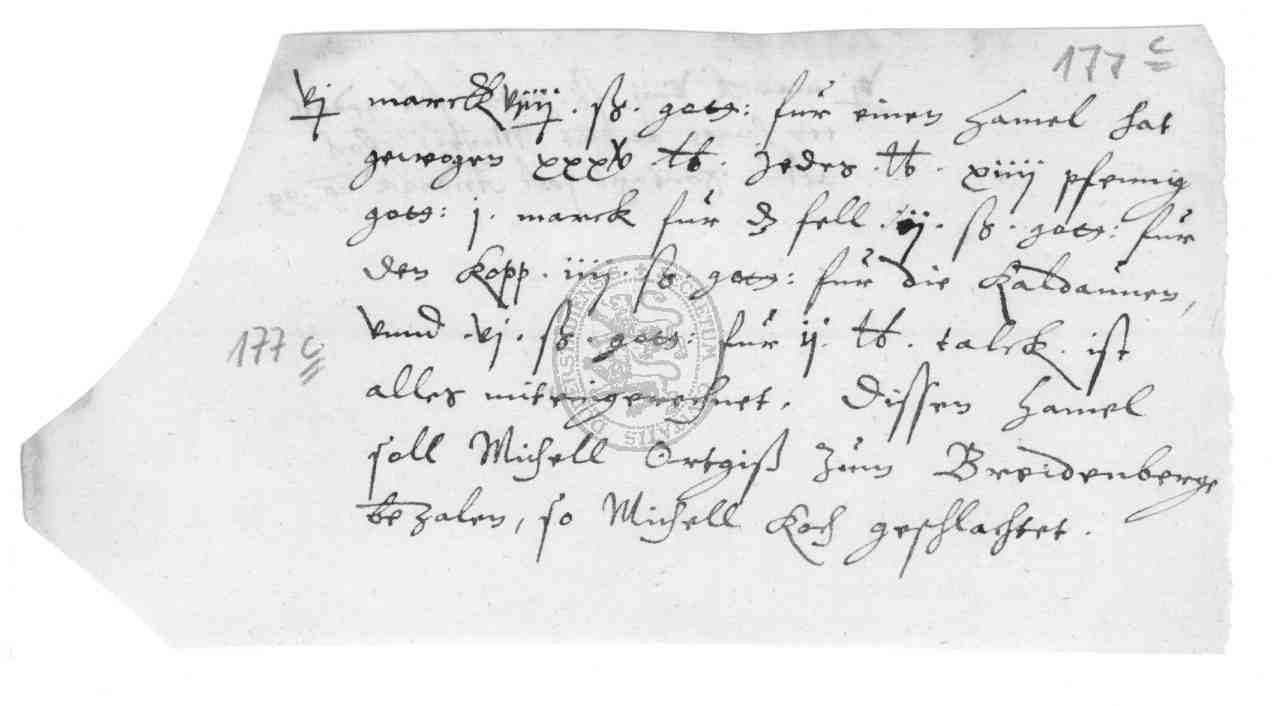 177 c
vj marck viiij . ß . gots: für einen Hamel hat
gewogen xxxv . ℔ . Jedes . ℔ . xiiij pfennig
gots: j . marck für dz fell . ij . ß . gots: für
den Kopp . iiij . ß . gots: für die Kaldaunen,
vnnd . vj . ß . gots: für ij . ℔ . talck . ist
177 c
alles mit eingerechnet . Dissen Hamel
soll Michell Ortgiß zum Breidenberge
bezalen, so Michell Koch geschlachtet .